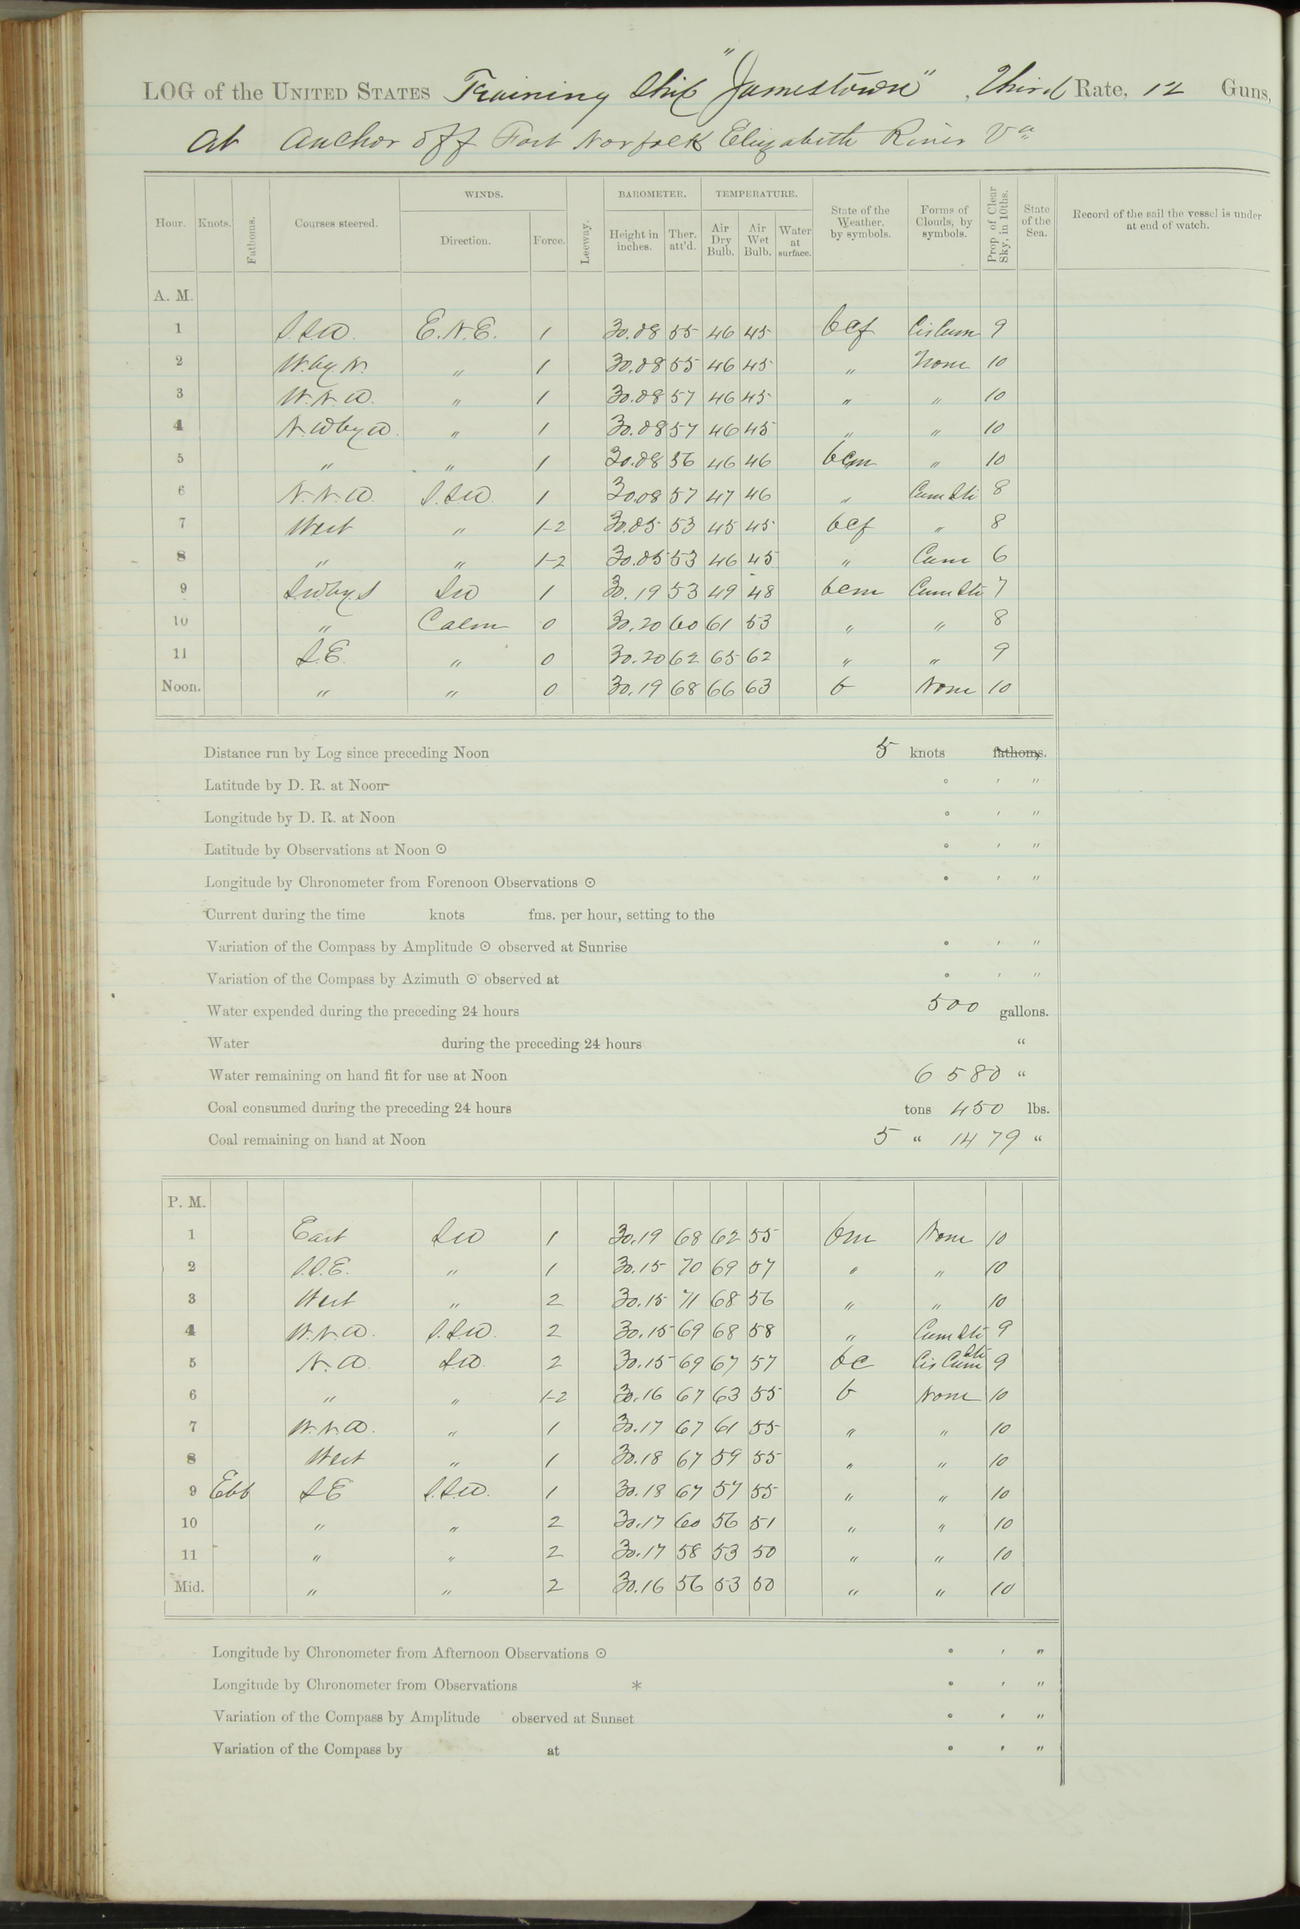 LOG of the UNITED STATES Training Ship "Jamestown", Third Rate, 12 Guns,
At Anchor off Fort Norfolk Elizabeth River Va
Hour. Knots. Fathoms. Courses steered. WINDS. Direction. Force. Leeway. BAROMETER. Height in inches. Ther. att'd. TEMPERATURE. Air Dry Bulb. Air Wet Bulb. Water at surface. State of the Weather, by symbols. Forms of Clouds, by symbols. Prop. of Clear Sky, in 10ths. State of the Sea. Record of the sail the vessel is under at end of watch.
A. M.
1 S.SW. E.N.E. 1 30.08 55 46 45 bcf CisCum 9
2 W.by N. " 1 30.08 55 46 45 " None 10
3 W.N.W. " 1 30.08 57 46 45 " " 10
4 N.W by W. " 1 30.08 57 46 45 " " 10
5 " " 1 30.08 56 46 46 bcm " 10
6 N.N.W. S.SW. 1 30.08 57 47 46 " Cum Sti 8
7 West " 1-2 30.05 53 45 45 bcf " 8
8 " " 1-2 30.05 53 46 45 " Cum 6
9 S.W by S SW 1 30.19 53 49 48 bcm Cum Sti 7
10 " Calm 0 30.20 60 61 53 " " 8
11 S.E. " 0 30.20 62 65 62 " " 9
Noon. " " 0 30.19 68 66 63 b None 10
Distance run by Log since preceding Noon 5 knots fathoms.
Latitude by D. R. at Noon ° ' "
Longitude by D. R. at Noon ° ' "
Latitude by Observations at Noon ⊙ ° ' "
Longitude by Chronometer from Forenoon Observations ⊙ ° ' "
Current during the time knots fms. per hour, setting to the
Variation of the Compass by Amplitude ⊙ observed at Sunrise ° ' "
Variation of the Compass by Azimuth ⊙ observed at ° ' "
Water expended during the preceding 24 hours 500 gallons.
Water during the preceding 24 hours "
Water remaining on hand fit for use at Noon 6580 "
Coal consumed during the preceding 24 hours tons 450 lbs.
Coal remaining on hand at Noon 5 " 1479 "
P. M.
1 East SW 1 30.19 68 62 55 bm None 10
2 S.S.E. " 1 30.15 70 69 57 " " 10
3 West " 2 30.15 71 68 56 " " 10
4 W.N.W. S.SW. 2 30.15 69 68 58 " Cum Sti 9
5 N.W. SW. 2 30.15 69 67 57 bc Cis Cum Sti 9
6 " " 1-2 30.16 67 63 55 b None 10
7 W.N.W. " 1 30.17 67 61 55 " " 10
8 West " 1 30.18 67 59 55 " " 10
9 Ebb SE S.SW. 1 30.18 67 57 55 " " 10
10 " " 2 30.17 60 56 51 " " 10
11 " " 2 30.17 58 53 50 " " 10
Mid. " " 2 30.16 56 53 50 " " 10
Longitude by Chronometer from Afternoon Observations ⊙ ° ' "
Longitude by Chronometer from Observations * ° ' "
Variation of the Compass by Amplitude observed at Sunset ° ' "
Variation of the Compass by at ° ' "